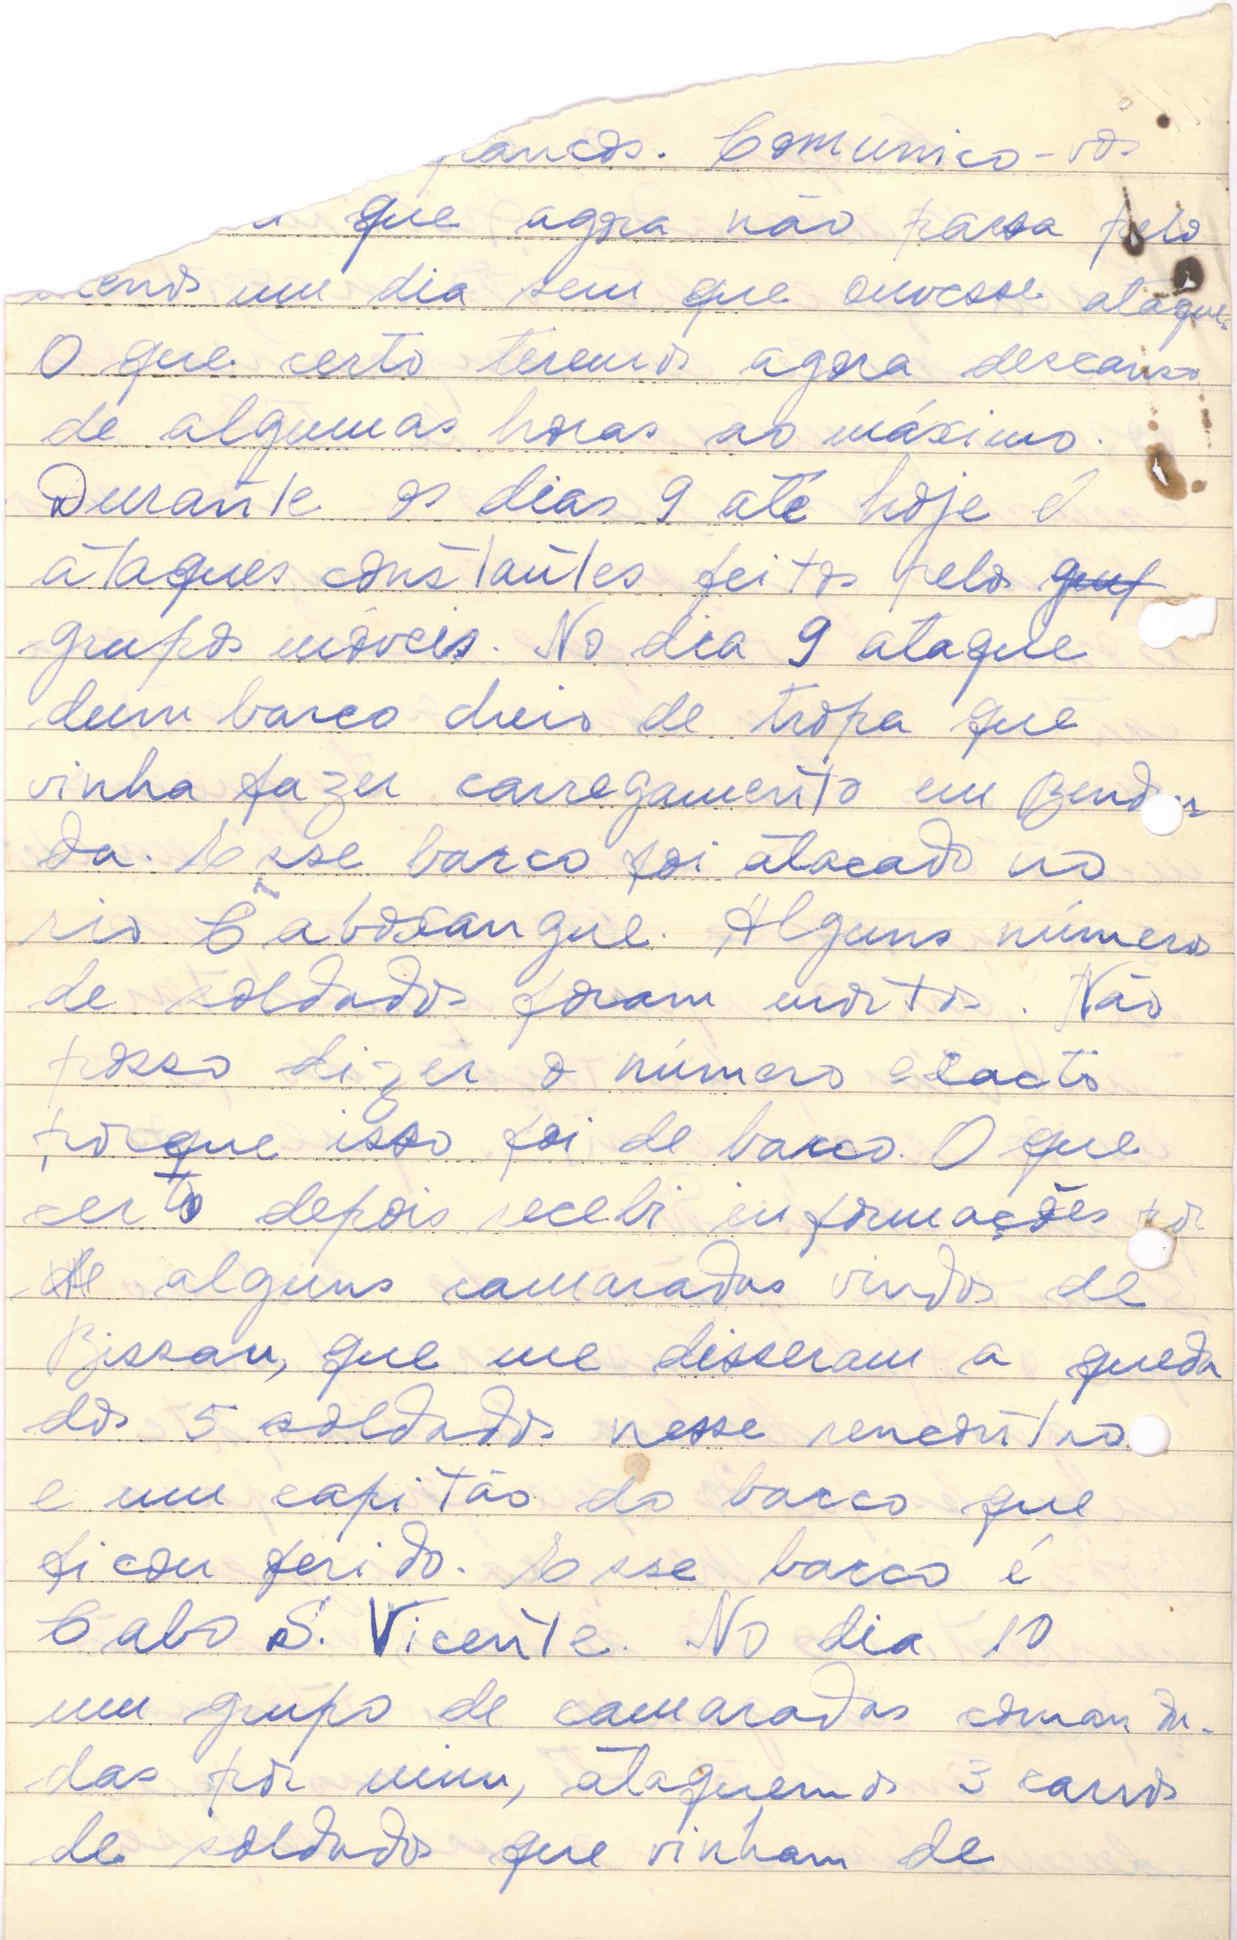 ancos. Comunico-vos
que agora não passa pelo
menos um dia sem que ouvesse ataque.
O que certo teremos agora descanso
de algumas horas ao máximo.
Durante os dias 9 até hoje é
ataques constantes feitos pelos
grupos móveis. No dia 9 ataque
dum barco cheio de tropa que
vinha fazer carregamento em
da. Esse barco foi atacado no
rio Caboxangue. Alguns número
de soldados foram mortos. Não
posso dizer o número exacto
porque isso foi de barco. O que
certo depois recebi informações por
de alguns camaradas vindos de
Bissau, que me disseram a queda
dos 5 soldados nesse rencontro
e um capitão do barco que
ficou ferido. Esse barco é
Cabo S. Vicente. No dia 10
um grupo de camaradas coman da-
das por mim, ataquemos 3 carros
de soldados que vinham de